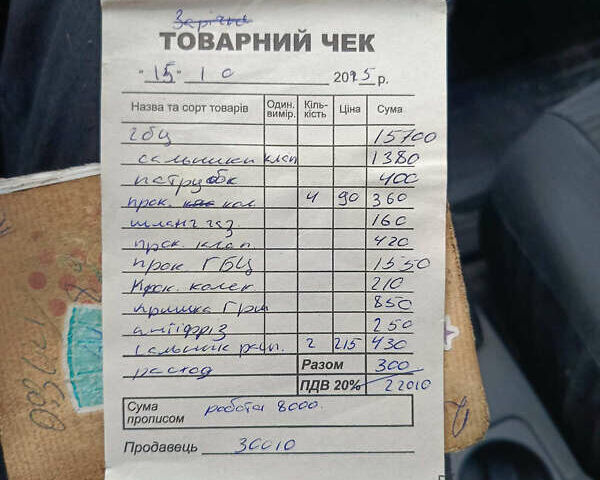 Зарічна
ТОВАРНИЙ ЧЕК
"15" 10 2025 р.
Назва та сорт товарів Один. вимір. Кіль-кість Ціна Сума
гбц 15700
сальники клап 1380
патрубк 400
прок. кол 4 90 360
шланг газ. 160
прок. клап. 420
прок ГБЦ 1550
Прк. колек 210
кришка Грм 850
антіфріз 250
сальник расп. 2 215 430
расход Разом 300
ПДВ 20% 22010
Сума прописом робота 8000.
Продавець 30010